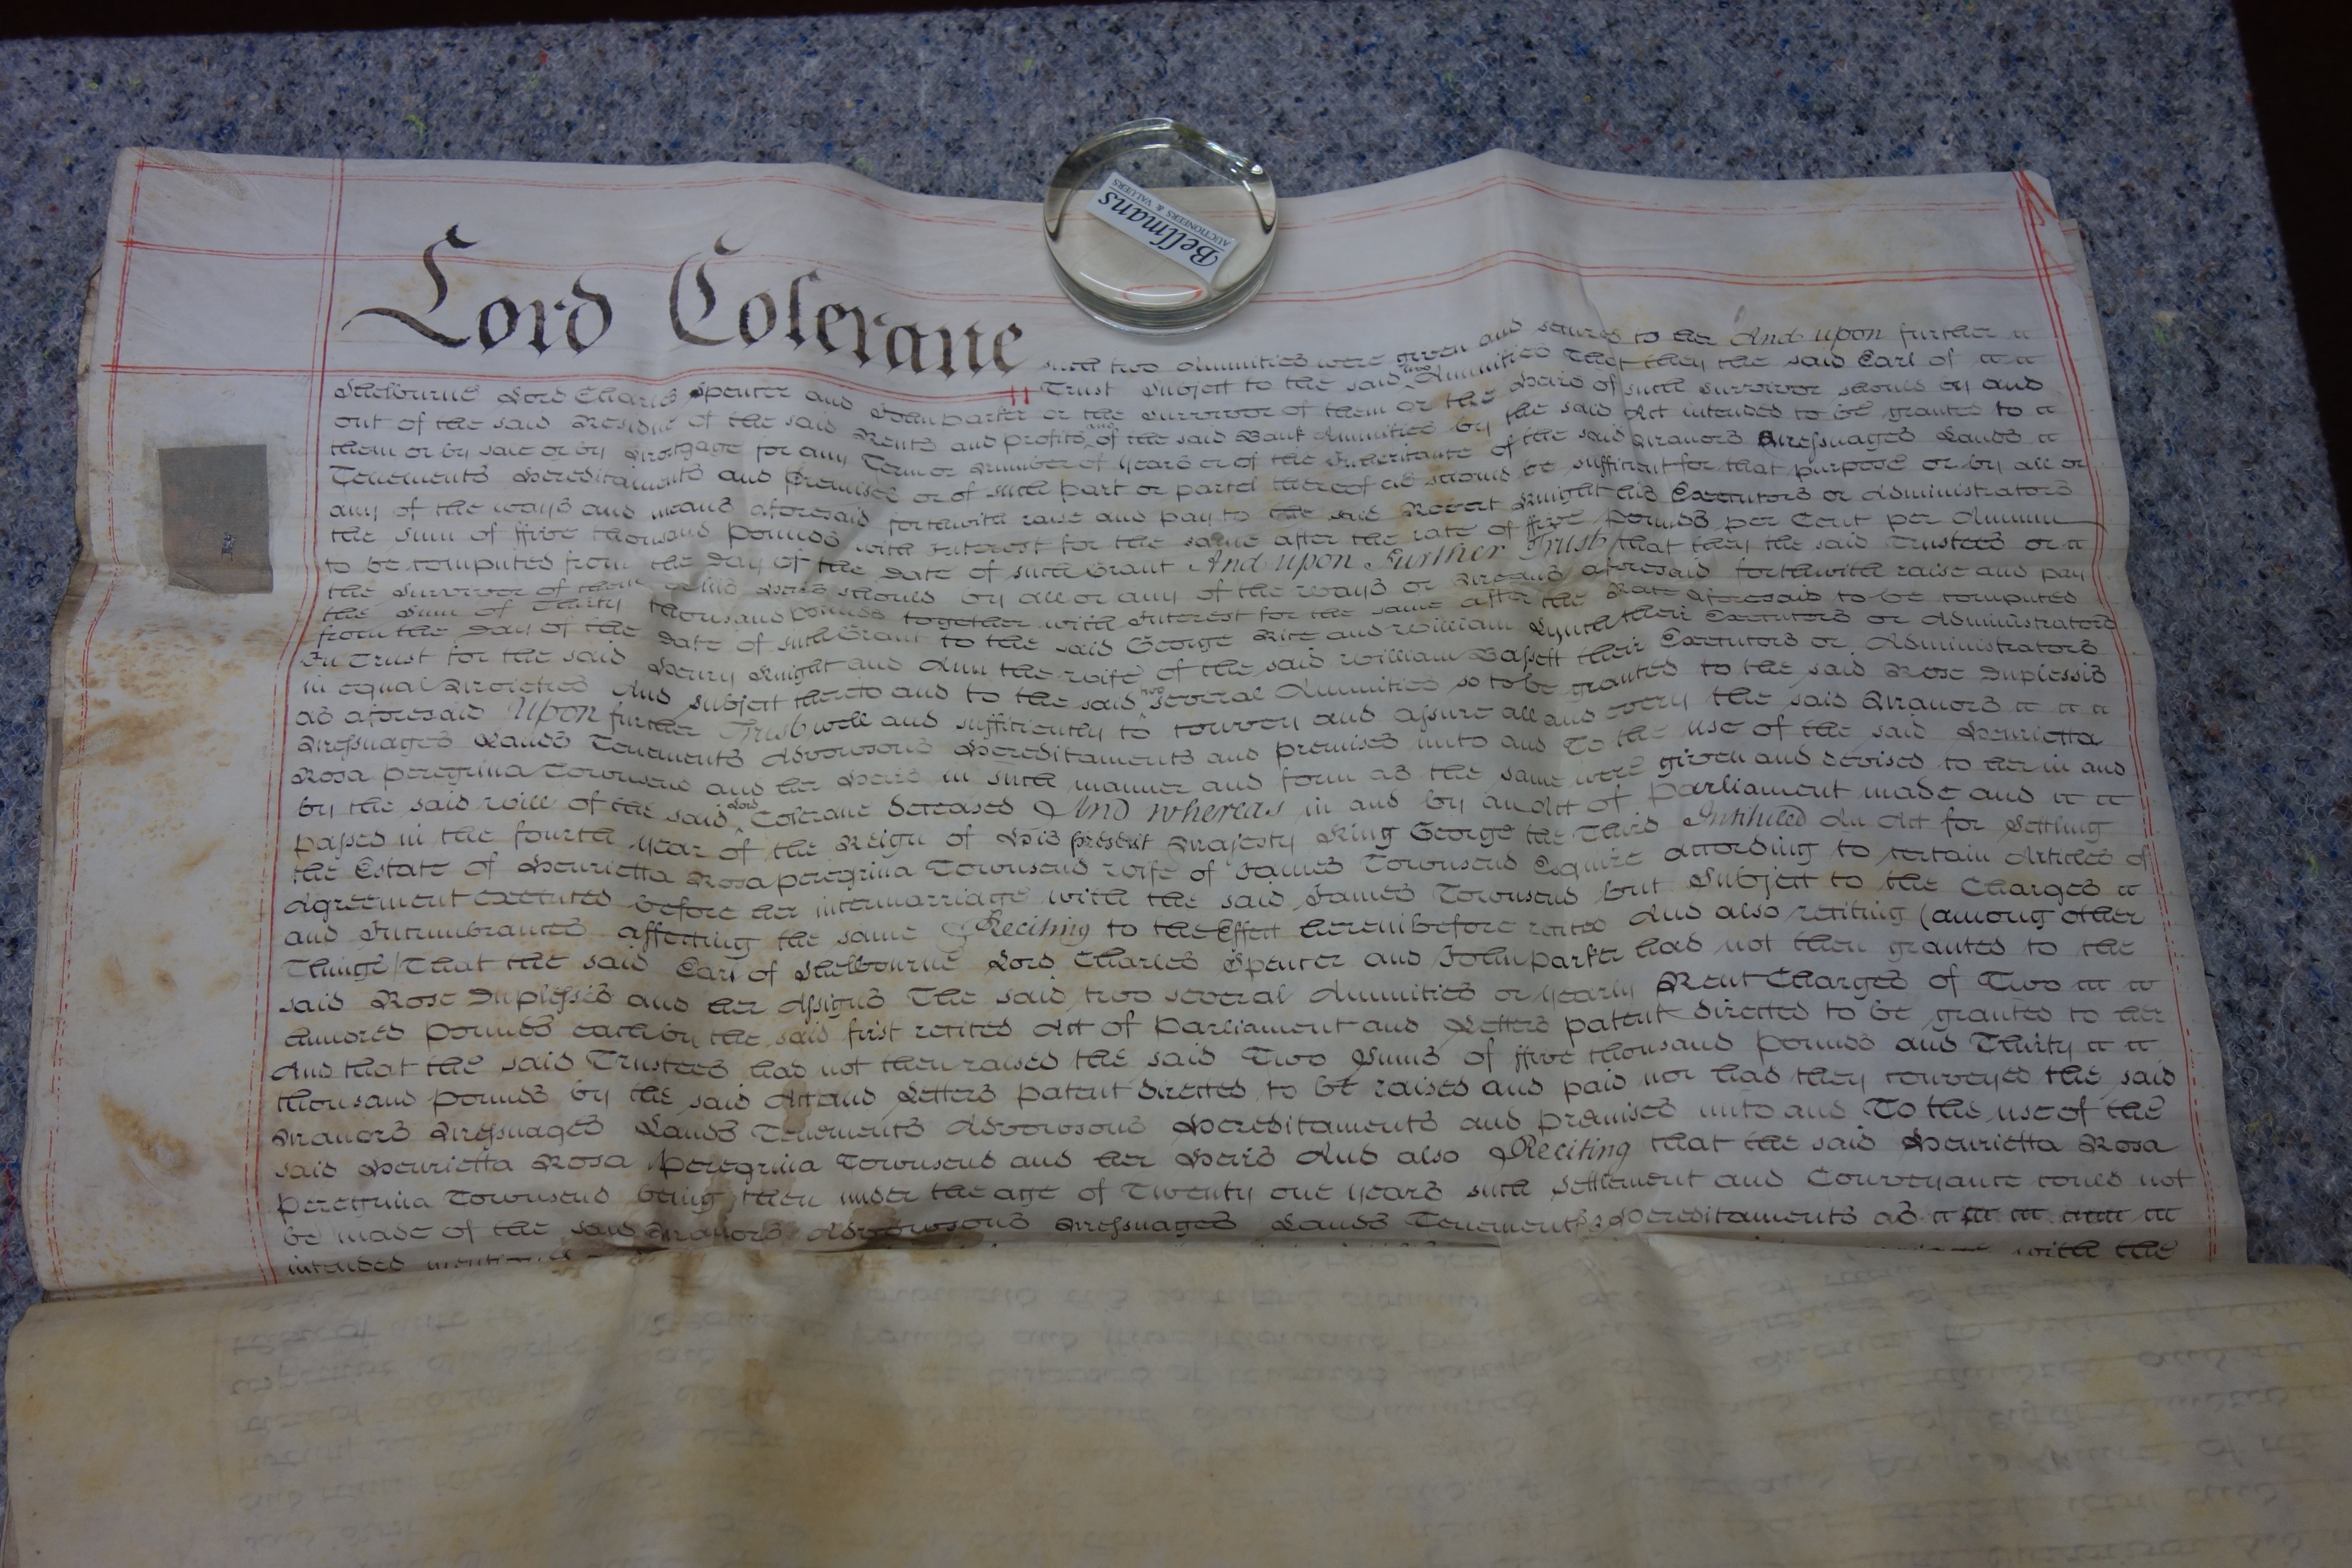 Lord Colerane
Bellmans
AUCTIONEERS & VALUERS
such two Annuities were given and secured to her And upon further
Trust Subject to the said two Annuities That they the said Earl of
Shelbourne Lord Charles Spencer and John Parker or the Survivor of them or the Heirs of such Survivor should by and
out of the said Residue of the said Rents and profits and of the said Bank Annuities by the said Act intended to be granted to
them or by sale or by Mortgage for any Term or Number of Years or of the Inheritance of the said Manors Messuages Lands
Tenements Hereditaments and Premises or of such part or parcel thereof as should be sufficient for that purpose or by all or
any of the ways and means aforesaid forthwith raise and pay to the said Robert Knight his Executors or Administrators
the Sum of ffive thousand Pounds with Interest for the same after the rate of ffive pounds per Cent per Annum
to be computed from the Day of the Date of such Grant And upon Further Trust that they the said Trustees or
the Survivor of them his Heirs should by all or any of the ways or Means aforesaid forthwith raise and pay
the Sum of Thirty thousand pounds together with Interest for the same after the Rate aforesaid to be computed
from the Day of the Date of such Grant to the said George Rice and William Lynch their Executors or Administrators
In Trust for the said Henry Knight and Ann the wife of the said William Bassett their Executors or Administrators
in equal Moieties And subject thereto and to the said two several Annuities so to be granted to the said Rose Duplessis
as aforesaid Upon further Trust well and sufficiently to convey and assure all and every the said Manors
Messuages Lands Tenements Advowsons Hereditaments and premises unto and To the use of the said Henrietta
Rosa Peregrina Townsend and her Heirs in such manner and form as the same were given and devised to her in and
by the said will of the said Lord Colerane deceased And whereas in and by an Act of Parliament made and
passed in the fourth year of the Reign of His present Majesty King George the Third Intituled An Act for Settling
the Estate of Henrietta Rosa peregrina Townsend wife of James Townsend Esquire according to certain Articles of
Agreement executed before her intermarriage with the said James Townsend but Subject to the Charges
and Incumbrances affecting the same Reciting to the Effect hereinbefore recited And also reciting (among other
Things) That the said Earl of Shelbourne Lord Charles Spencer and John parker had not then granted to the
said Rose Duplessis and her Assigns The said two several Annuities or yearly Rent Charges of Two
hundred pounds each by the said first recited Act of Parliament and Letters patent directed to be granted to her
And that the said Trustees had not then raised the said Two Sums of ffive thousand pounds and Thirty
thousand pounds by the said Act and Letters patent directed to be raised and paid nor had they conveyed the said
Manors Messuages Lands Tenements Advowsons Hereditaments and premises unto and To the use of the
said Henrietta Rosa Peregrina Townsend and her Heirs And also Reciting that the said Henrietta Rosa
Peregrina Townsend being then under the age of Twenty one years such Settlement and Conveyance could not
be made of the said Manors Advowsons Messuages Lands Tenements Hereditaments as
intended with the